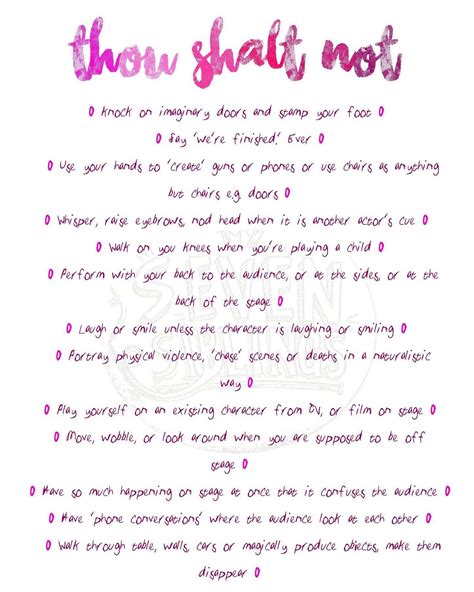 thou shalt not
0 Knock on imaginary doors and stamp your foot 0
0 Say 'we're finished'. Ever 0
0 Use your hands to 'create' guns or phones or use chairs as anything
but chairs e.g. doors 0
0 Whisper, raise eyebrows, nod head when it is another actor's cue 0
0 Walk on you knees when you're playing a child 0
0 Perform with your back to the audience, or at the sides, or at the
back of the stage 0
0 Laugh or smile unless the character is laughing or smiling 0
0 Portray physical violence, 'chase' scenes or deaths in a naturalistic
way 0
0 Play yourself on an existing character from TV, or film on stage 0
0 Move, wobble, or look around when you are supposed to be off
stage 0
0 Have so much happening on stage at once that it confuses the audience 0
0 Have 'phone conversations' where the audience look at each other 0
0 Walk through table, walls, cars or magically produce objects, make them
disappear 0
MY
SEVEN
SIBLINGS